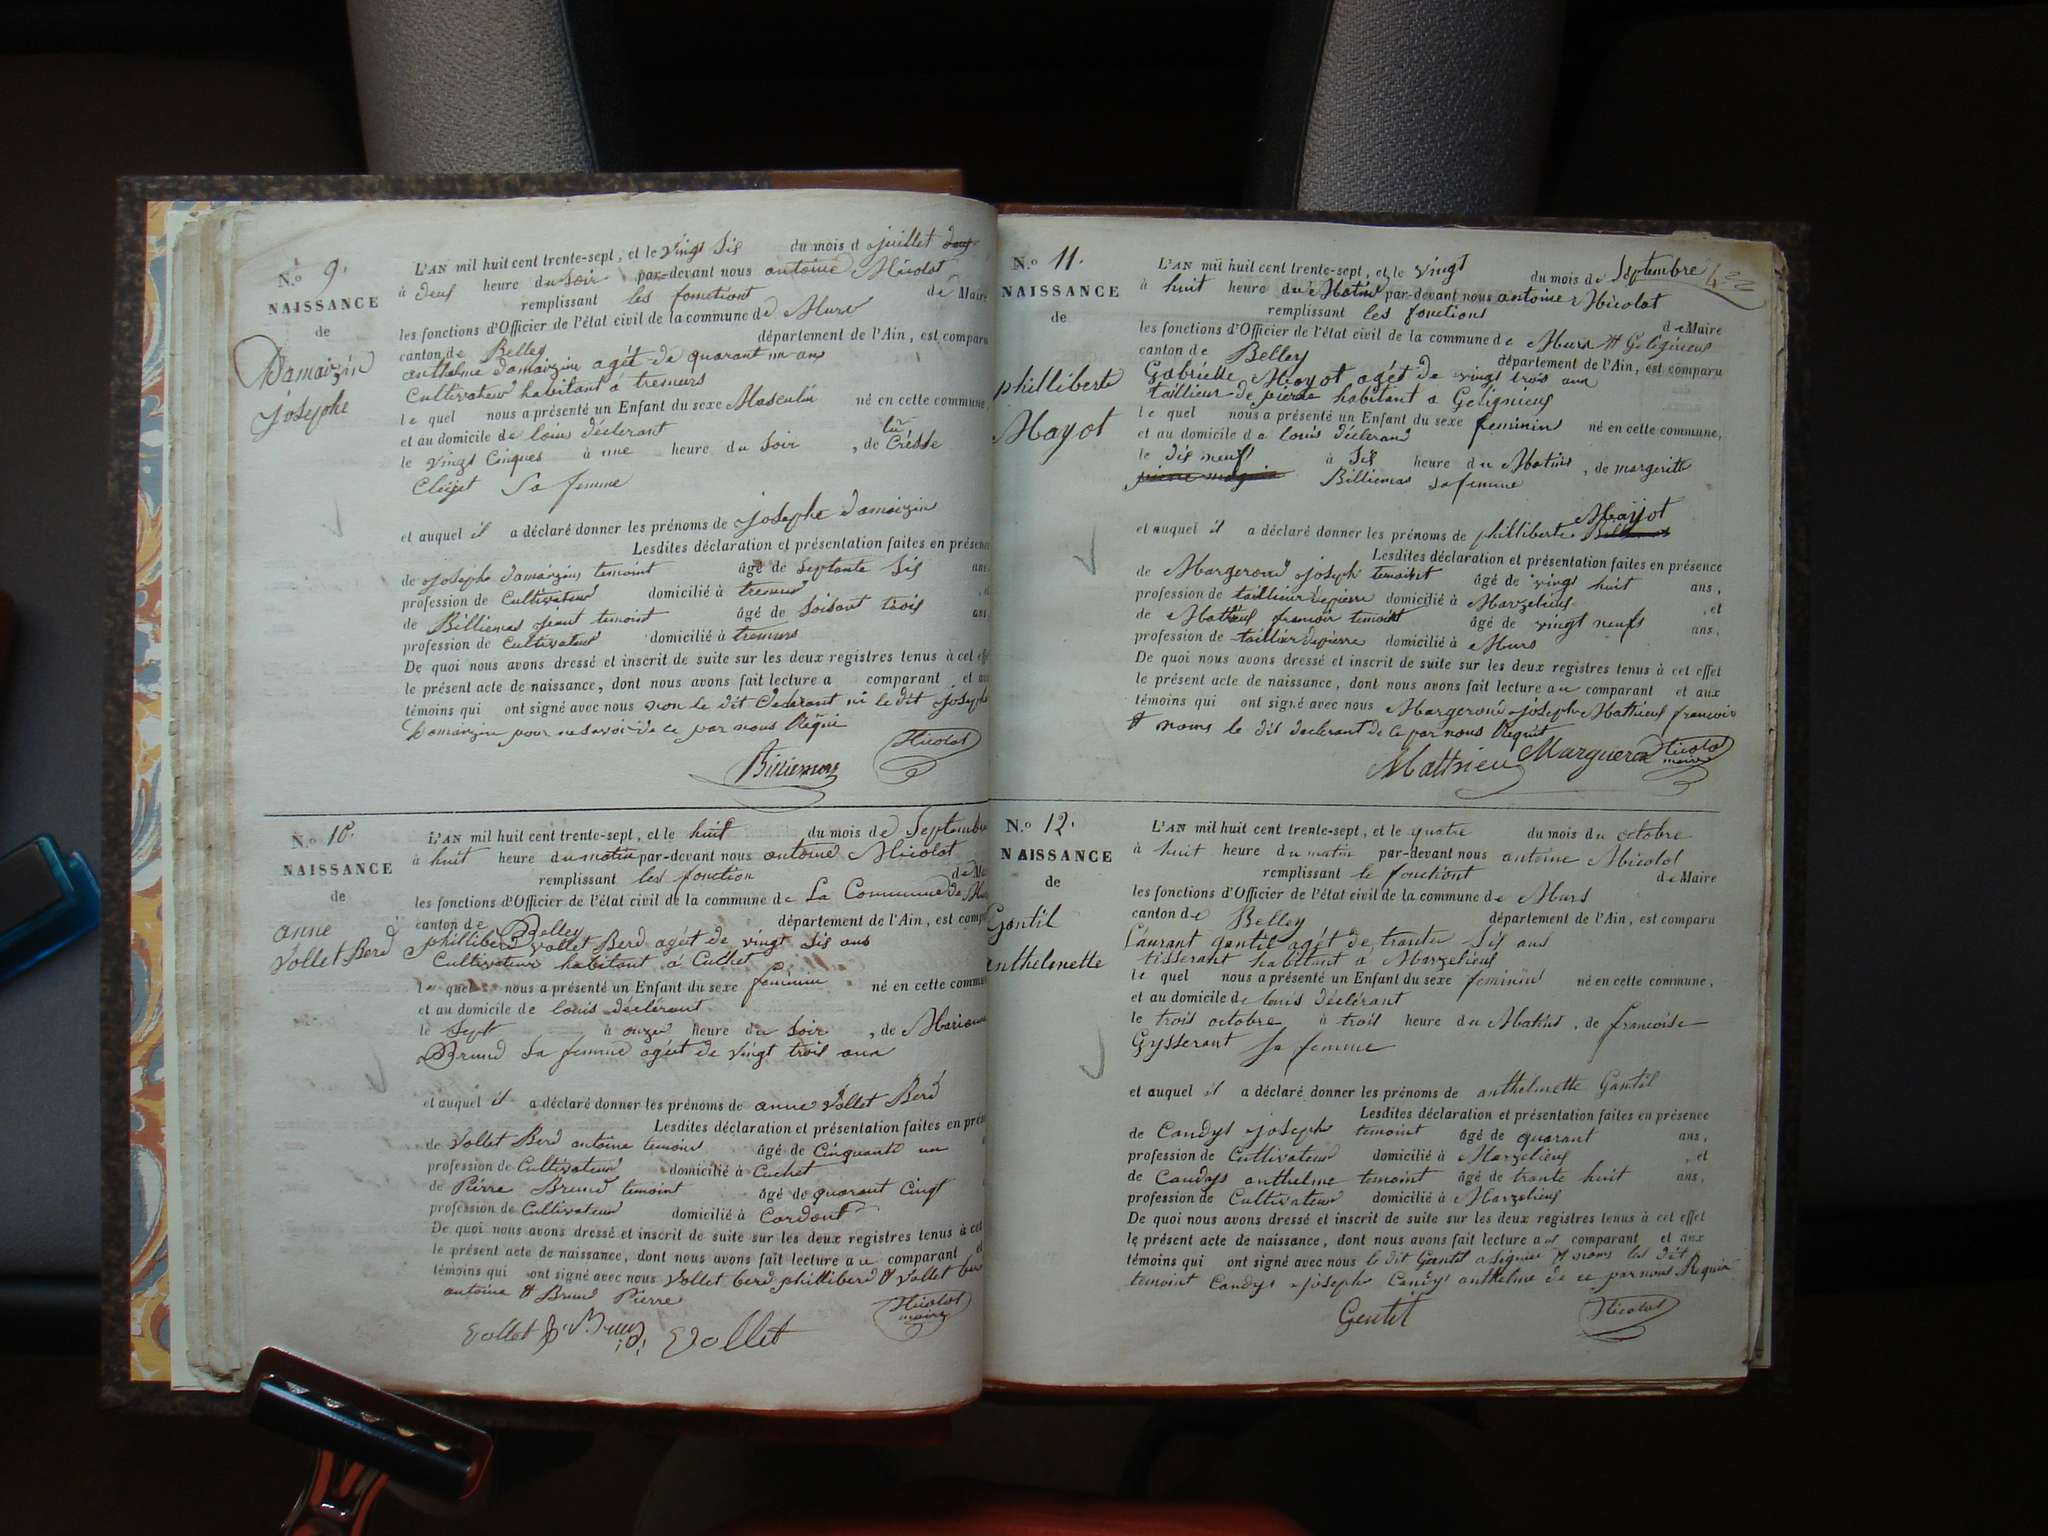 N.o 9.
NAISSANCE
de
Damaizin
josephe
L'AN mil huit cent trente-sept, et le vingt six du mois d juillet
à deux heure du soir par-devant nous antoine Nicolot
remplissant les fonctiont de Maire
les fonctions d'Officier de l'état civil de la commune de Murs
canton de Belley département de l'Ain, est comparu
anthelme damaizin agét de quarant un ans
Cultivateur habitant a tremurs
le quel nous a présenté un Enfant du sexe Masculin né en cette commune,
et au domicile de loui déclerant
le vingt Cinques à une heure du soir, de
sa femme
et auquel il a déclaré donner les prénoms de josephe damaizin
Lesdites déclaration et présentation faites en présence
de josephe damaizin temoint âgé de septante six ans
profession de Cultivateur domicilié à tremurs, et
de Billiemas temoint âgé de soisant trois ans
profession de Cultivateur domicilié à tremurs
De quoi nous avons dressé et inscrit de suite sur les deux registres tenus à cet eff
le présent acte de naissance, dont nous avons fait lecture a comparant et au
témoins qui ont signé avec nous non le dit Declérant ni le dit josephe
Damaizin pour ne savoir de ce par nous Réqui
Billiemas Nicolot
N.o 10.
NAISSANCE
de
anne
Vollet Berd
L'AN mil huit cent trente-sept, et le huit du mois de Septembre
à huit heure du matin par-devant nous antoine Nicolot
remplissant les fonction de Mai
les fonctions d'Officier de l'état civil de la commune de La Commune de Murs
canton de Belley département de l'Ain, est comp
philliberd Vollet Berd agét de vingt six ans
Cultivateur habitant a Cuchet
le quel nous a présenté un Enfant du sexe feminin né en cette commune
et au domicile de louis déclérant
le sept à onze heure du soir, de Marianne
Brund sa femme agéet de vingt trois ans
et auquel il a déclaré donner les prénoms de anne Vollet Berd
Lesdites déclaration et présentation faites en prés
de Vollet Berd antoine temoint âgé de Cinquante un
profession de Cultivateur domicilié à Cuchet
de Pierre Brund temoint âgé de quarant Cinqt
profession de Cultivateur domicilié à Cordont
De quoi nous avons dressé et inscrit de suite sur les deux registres tenus à cet
le présent acte de naissance, dont nous avons fait lecture au comparant et
témoins qui ont signé avec nous Vollet berd philliberd & Vollet ber
antoine & Brund Pierre
Vollet Vollet Nicolot maire
N.o 11.
NAISSANCE
de
philliberte
Mayot
L'AN mil huit cent trente-sept, et le vingt du mois de septembre
à huit heure du Matin par-devant nous antoine Nicolot
remplissant les fonctions de Maire
les fonctions d'Officier de l'état civil de la commune de Murs & Geligneus
canton de Belley département de l'Ain, est comparu
Gabrielle Mayot agét de vingt trois ans
taillieur de pierre habitant a Gelignieus
le quel nous a présenté un Enfant du sexe feminin né en cette commune,
et au domicile de louis déclerand
le dix neuf à six heure du Matins, de margerithe
pierre Billiemas sa femme
Mayot
et auquel il a déclaré donner les prénoms de philliberte
Lesdites déclaration et présentation faites en présence
de Margerond joseph temoint âgé de vingt huit ans,
profession de taillieur de pierre domicilié à Marzelieus, et
de Mathieus francoir temoint âgé de vingt neufs ans,
profession de taillier de pierre domicilié à Murs
De quoi nous avons dressé et inscrit de suite sur les deux registres tenus à cet effet
le présent acte de naissance, dont nous avons fait lecture au comparant et aux
témoins qui ont signé avec nous Margerond joseph Mathieus francoir
& noms le dit declerant de ce par nous Requit
Matthieu Margueron Nicolot maire
N.o 12.
NAISSANCE
de
Gontil
anthelmette
L'AN mil huit cent trente-sept, et le quatre du mois du octobre
à huit heure du matin par-devant nous antoine Nicolot
remplissant le fonctiont de Maire
les fonctions d'Officier de l'état civil de la commune de Murs
canton de Belley département de l'Ain, est comparu
Laurant gantil agét de trante six ans
tisserant habitant a Marzelieus
le quel nous a présenté un Enfant du sexe feminin né en cette commune,
et au domicile de louis déclérant
le trois octobre à trois heure du Matins, de francoise
Gysserant sa femme
et auquel il a déclaré donner les prénoms de anthelmette Gantil
Lesdites déclaration et présentation faites en présence
de Candys joseph temoint âgé de quarant ans,
profession de Cultivateur domicilié à Marzelieus, et
de Candys anthelme temoint âgé de trante huit ans,
profession de Cultivateur domicilié à Marzelieus
De quoi nous avons dressé et inscrit de suite sur les deux registres tenus à cet effet
le présent acte de naissance, dont nous avons fait lecture au comparant et aux
témoins qui ont signé avec nous le dit Gantil a signié & noms les dit
temoint Candys josephe Candys anthelme de ce par nous Requis
Gentil Nicolot